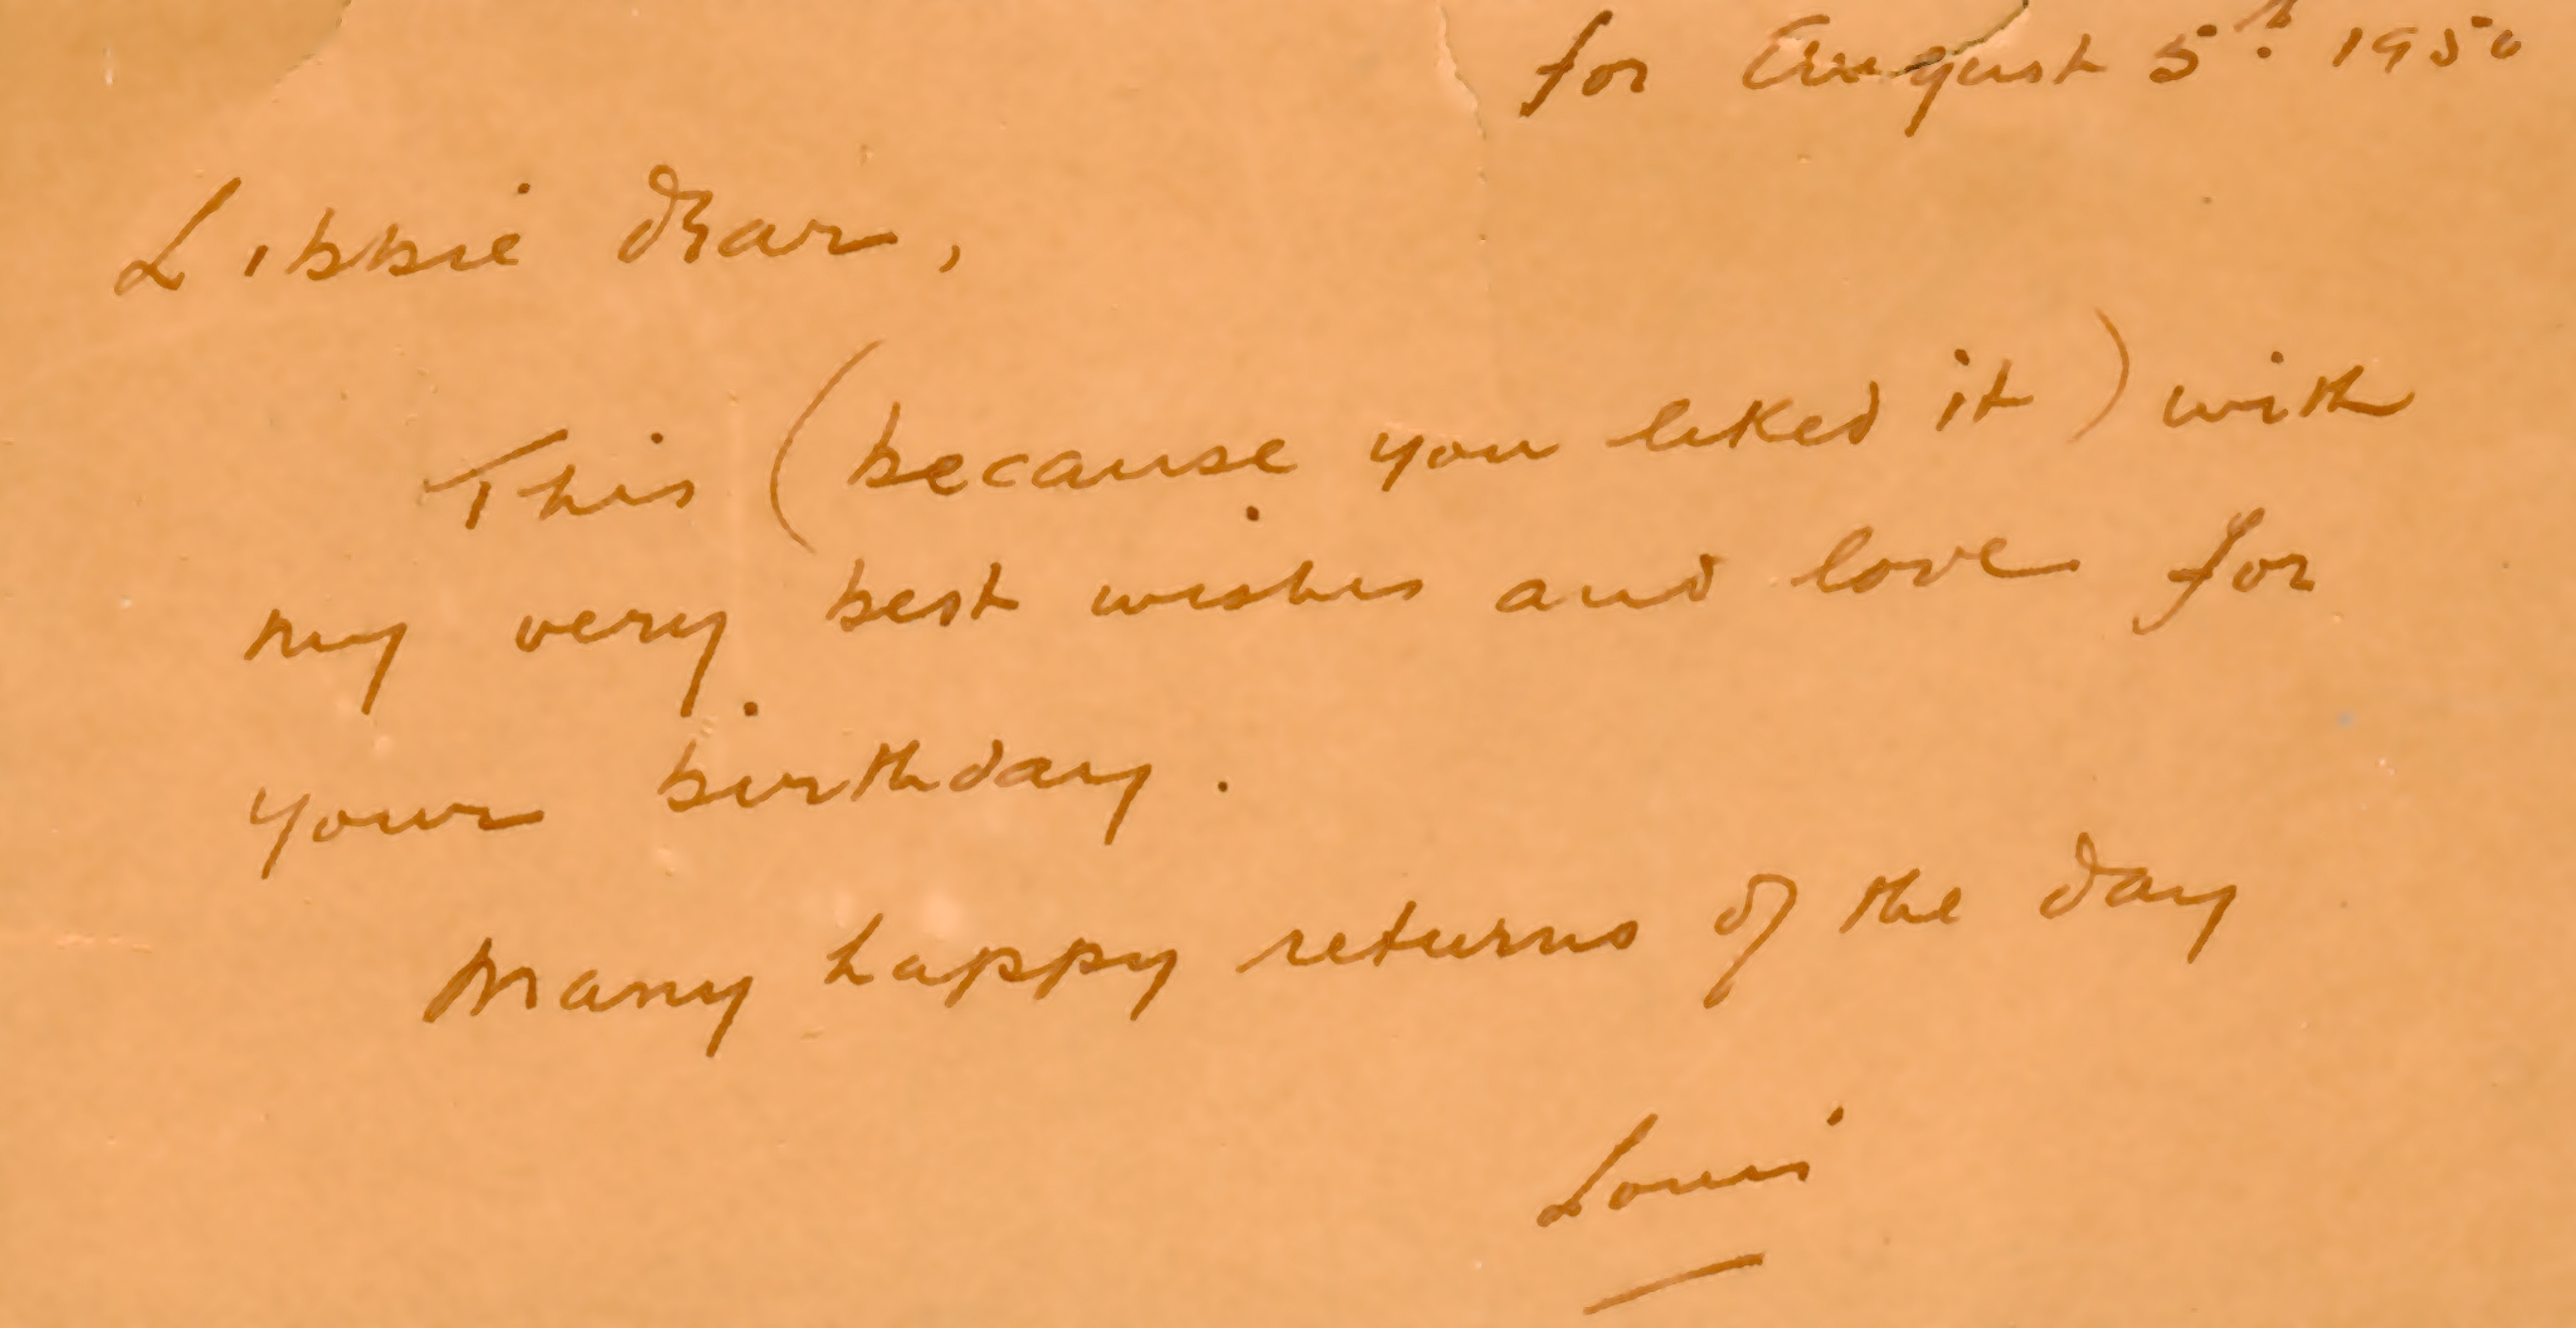 for August 5th 1950
Libbie dear,
This (because you liked it) with
my very best wishes and love for
your birthday.
Many happy returns of the day
Louis